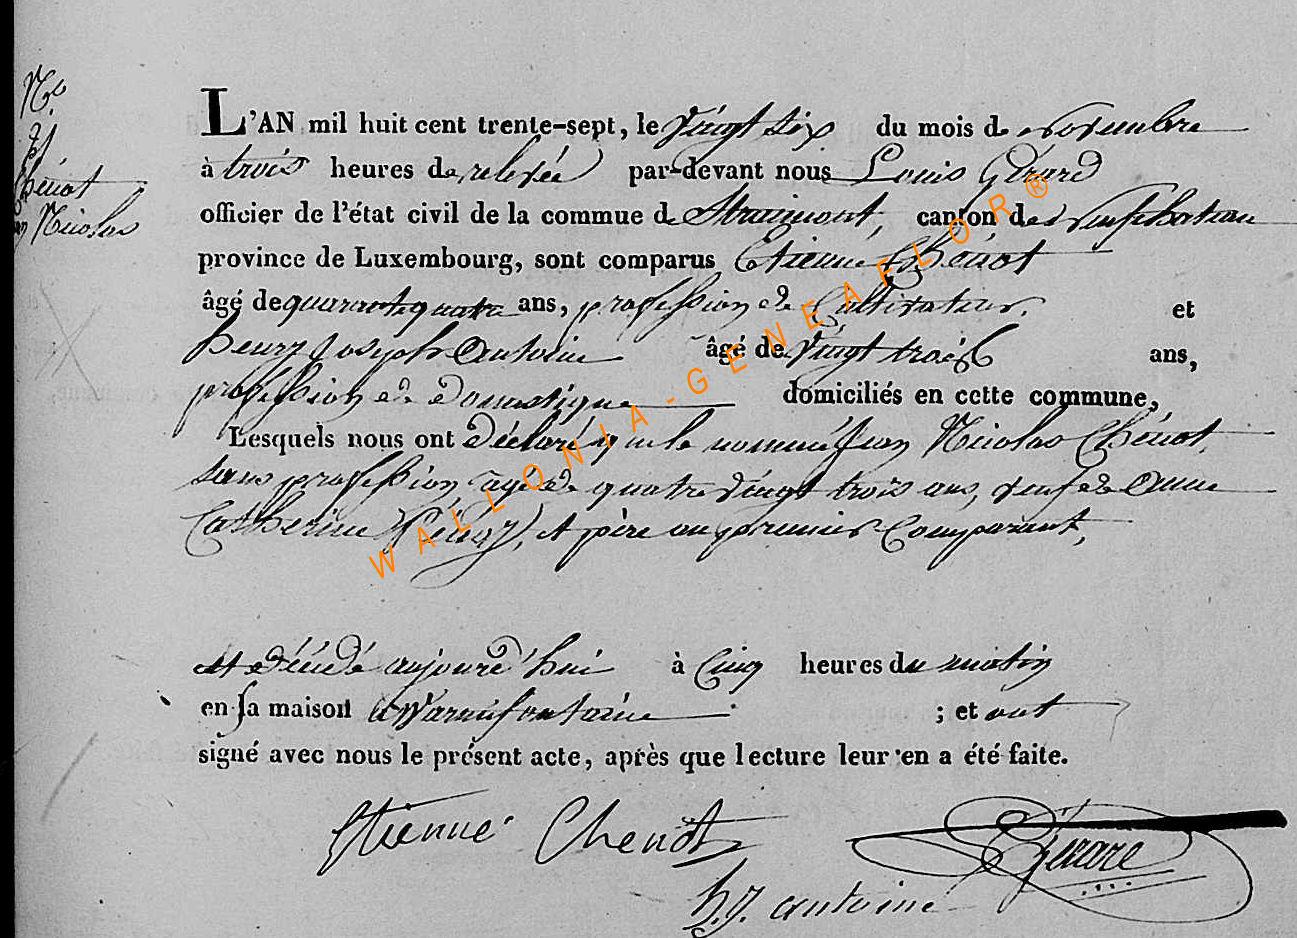 No
Chénot
Nicolas
L'AN mil huit cent trente-sept, le Vingt six du mois de novembre
à trois heures de relevée par-devant nous Louis Gérard
officier de l'état civil de la commue de Straimont, canton de neufchateau
province de Luxembourg, sont comparus Etienne Chénot
âgé de quarante quatre ans, profession de Cultivateur, et
henry Joseph Antoine âgé de Vingt trois ans,
profession de Domestique domiciliés en cette commune,
Lesquels nous ont Déclaré que le nommé Jean Nicolas Chénot,
sans profession agé de quatre vingt trois ans, veuf de Anne
Catherine et père au premier Comparant,
est décédé aujourd'hui à Cinq heures du matin
en sa maison a Warmifontaine ; et ont
signé avec nous le présent acte, après que lecture leur en a été faite.
Etienne Chenot
Gérard
h. J. antoine
WALLONIA-GENEAFLOR®